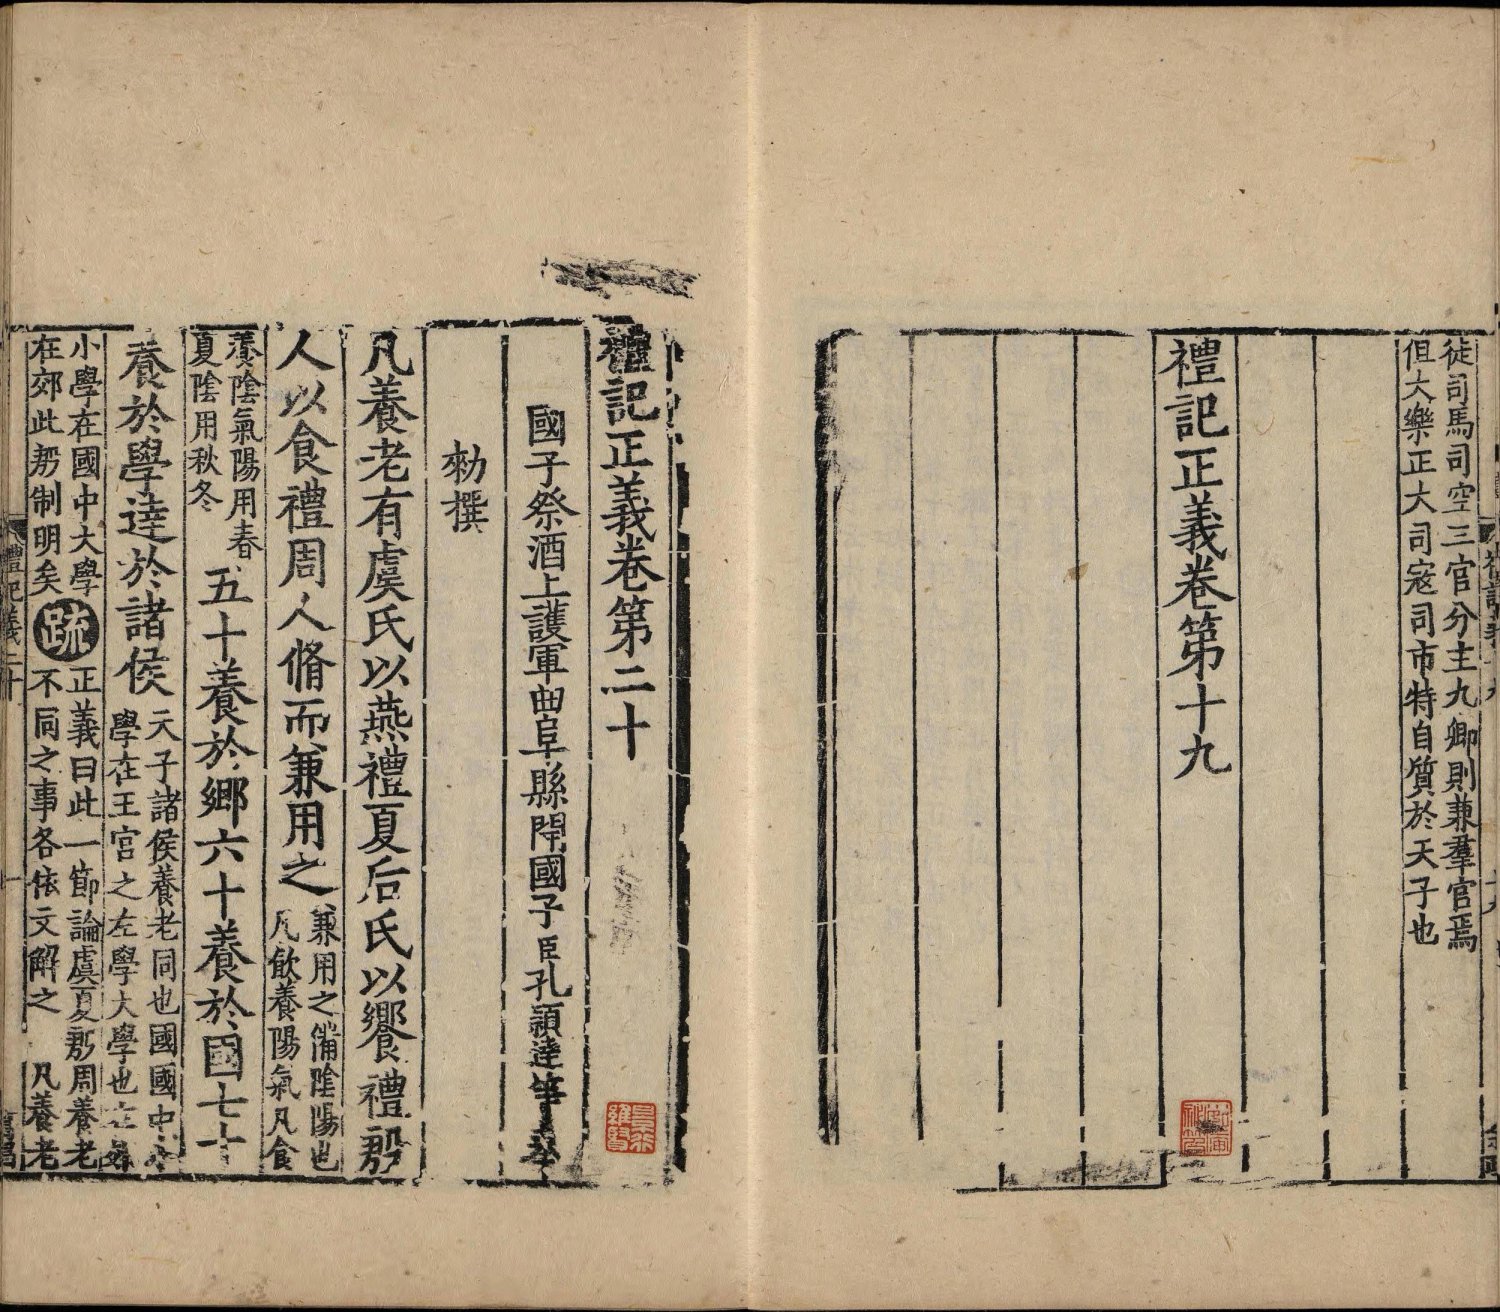 徒司馬司空三官分主九卿則兼羣官焉
但大樂正大司寇司市特自質於天子也
禮記正義卷第十九
禮記正義卷第二十
國子祭酒上護軍曲阜縣開國子臣孔穎達等奉
勑撰
凡養老有虞氏以燕禮夏后氏以饗禮殷
人以食禮周人脩而兼用之
兼用之備陰陽也
凡飲養陽氣凡食
養陰氣陽用春
夏陰用秋冬
五十養於鄉六十養於國七十
養於學達於諸侯
天子諸侯養老同也國國中小
學在王宮之左學大學也在郊
小學在國中大學
在郊此殷制明矣
疏
正義曰此一節論虞夏殷周養老
不同之事各依文解之　凡養老